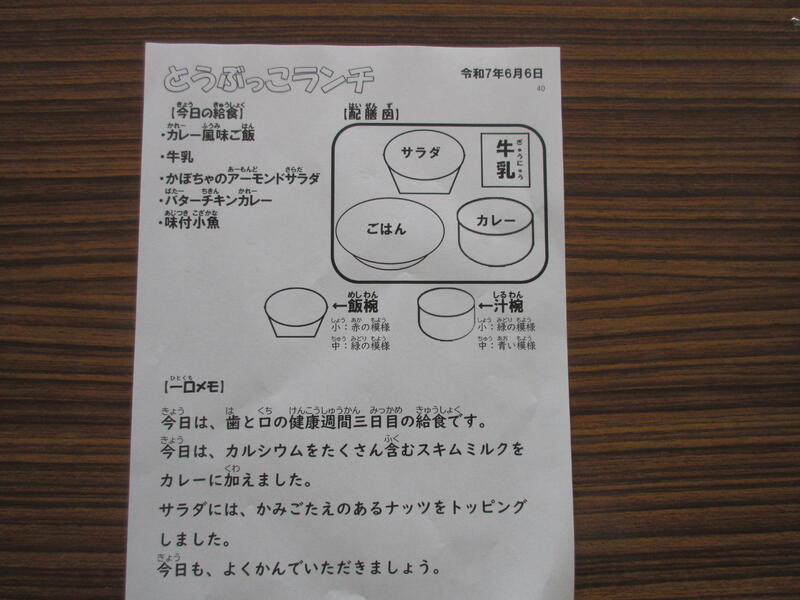 とうぶっこランチ
令和7年6月6日
40
【今日の給食】
・カレー風味ご飯
・牛乳
・かぼちゃのアーモンドサラダ
・バターチキンカレー
・味付小魚
【配膳図】
サラダ
牛乳
ごはん
カレー
←飯椀
小：赤の模様
中：緑の模様
←汁椀
小：緑の模様
中：青い模様
【一口メモ】
今日は、歯と口の健康週間三日目の給食です。
今日は、カルシウムをたくさん含むスキムミルクを
カレーに加えました。
サラダには、かみごたえのあるナッツをトッピング
しました。
今日も、よくかんでいただきましょう。